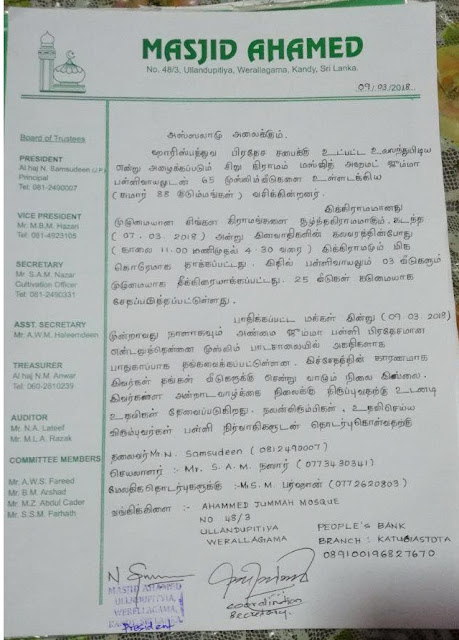 MASJID AHAMED
No. 48/3, Ullandupitiya, Werallagama, Kandy, Sri Lanka.
09/03/2018
Board of Trustees
PRESIDENT
Al haj N. Samsudeen U.P
Principal
Tel: 081-2490007
VICE PRESIDENT
Mr. M.B.M. Hazan
Tel: 081-4923105
SECRETARY
Mr. S.A.M. Nazar
Cultivation Officer
Tel: 081-2490331
ASST. SECRETARY
Mr. A.W.M. Haleemdeen
TREASURER
Al haj N.M. Anwar
Tel: 060-2810239
AUDITOR
Mr. N.A. Lateef
Mr. M.L.A. Razak
COMMITTEE MEMBERS
Mr. A.W.S. Fareed
Mr. B.M. Arshad
Mr. M.Z. Abdul Cader
Mr. S.S.M. Farhath
அஸ்ஸலாமு அலைக்கும்.
ஹாரிஸ்பத்துவ பிரதேச சபைக்கு உட்பட்ட உலந்துபிடிய
என்று அழைக்கப்படும் சிறு கிராமம் மஸ்ஜித் அஹமட் ஜும்மா
பள்ளிவாயலுடன் 65 முஸ்லிம்வீடுகளை உள்ளடக்கிய
(சுமார் 88 குடும்பங்கள்) வசிக்கின்றனர்.
இக்கிராமமானது
முழுமையான சிங்கள கிராமங்களை சூழ்ந்தகிராமமாகும். கடந்த
(07.03.2018) அன்று இனவாதிகளின் கலவரத்தின்போது
(காலை 11.00 மணிமுதல் 4.30 வரை) இக்கிராமமும் மிக
கொரமாக தாக்கப்பட்டது. இதில் பள்ளிவாயலும் 03 வீடுகளும்
முழுமையாக தீக்கிரையாக்கப்பட்டது. 25 வீடுகள் கடுமையாக
சேதப்படுத்தப்பட்டுள்ளது.
பாதிக்கப்பட்ட மக்கள் இன்று (09.03.2018)
மூன்றாவது நாளாகவும் அண்மை ஜும்மா பள்ளி பிரதேசமான
முஸ்லிம் பாடசாலையில் அகதிகளாக
பாதுகாப்பாக தங்கவைக்கப்பட்டுள்ளன. இச்சேதத்தின் காரணமாக
இவர்கள் தங்கள் வீடுகளுக்கு சென்று வாழும் நிலை இல்லை.
இவர்களை அன்றாடவாழ்க்கை நிலைக்கு திருப்புவதற்கு உடனடி
உதவிகள் தேவைப்படுகிறது. நலன்விரும்பிகள், உதவிசெய்ய
விரும்புவர்கள் பள்ளி நிர்வாகிகளுடன் தொடர்புகொள்வதற்கு
தலைவர் Mr N. Samsudeen (0812490007)
செயலாளர் :- Mr. S.A.M. நஸார் (0773430341)
மேலதிகதொடர்புகளுக்கு :- Mr S.M. பர்ஹான் (0772620803)
வங்கிக்கிளை :- AHAMMED JUMMAH MOSQUE
NO 48/3
ULLANDUPITIYA
WERALLAGAMA
PEOPLE'S BANK
BRANCH : KATUGASTOTA
089100196827670
MASJID AHAMED
ULLANDUPITIYA,
WERALLAGAMA,
President
coordination
secretary.